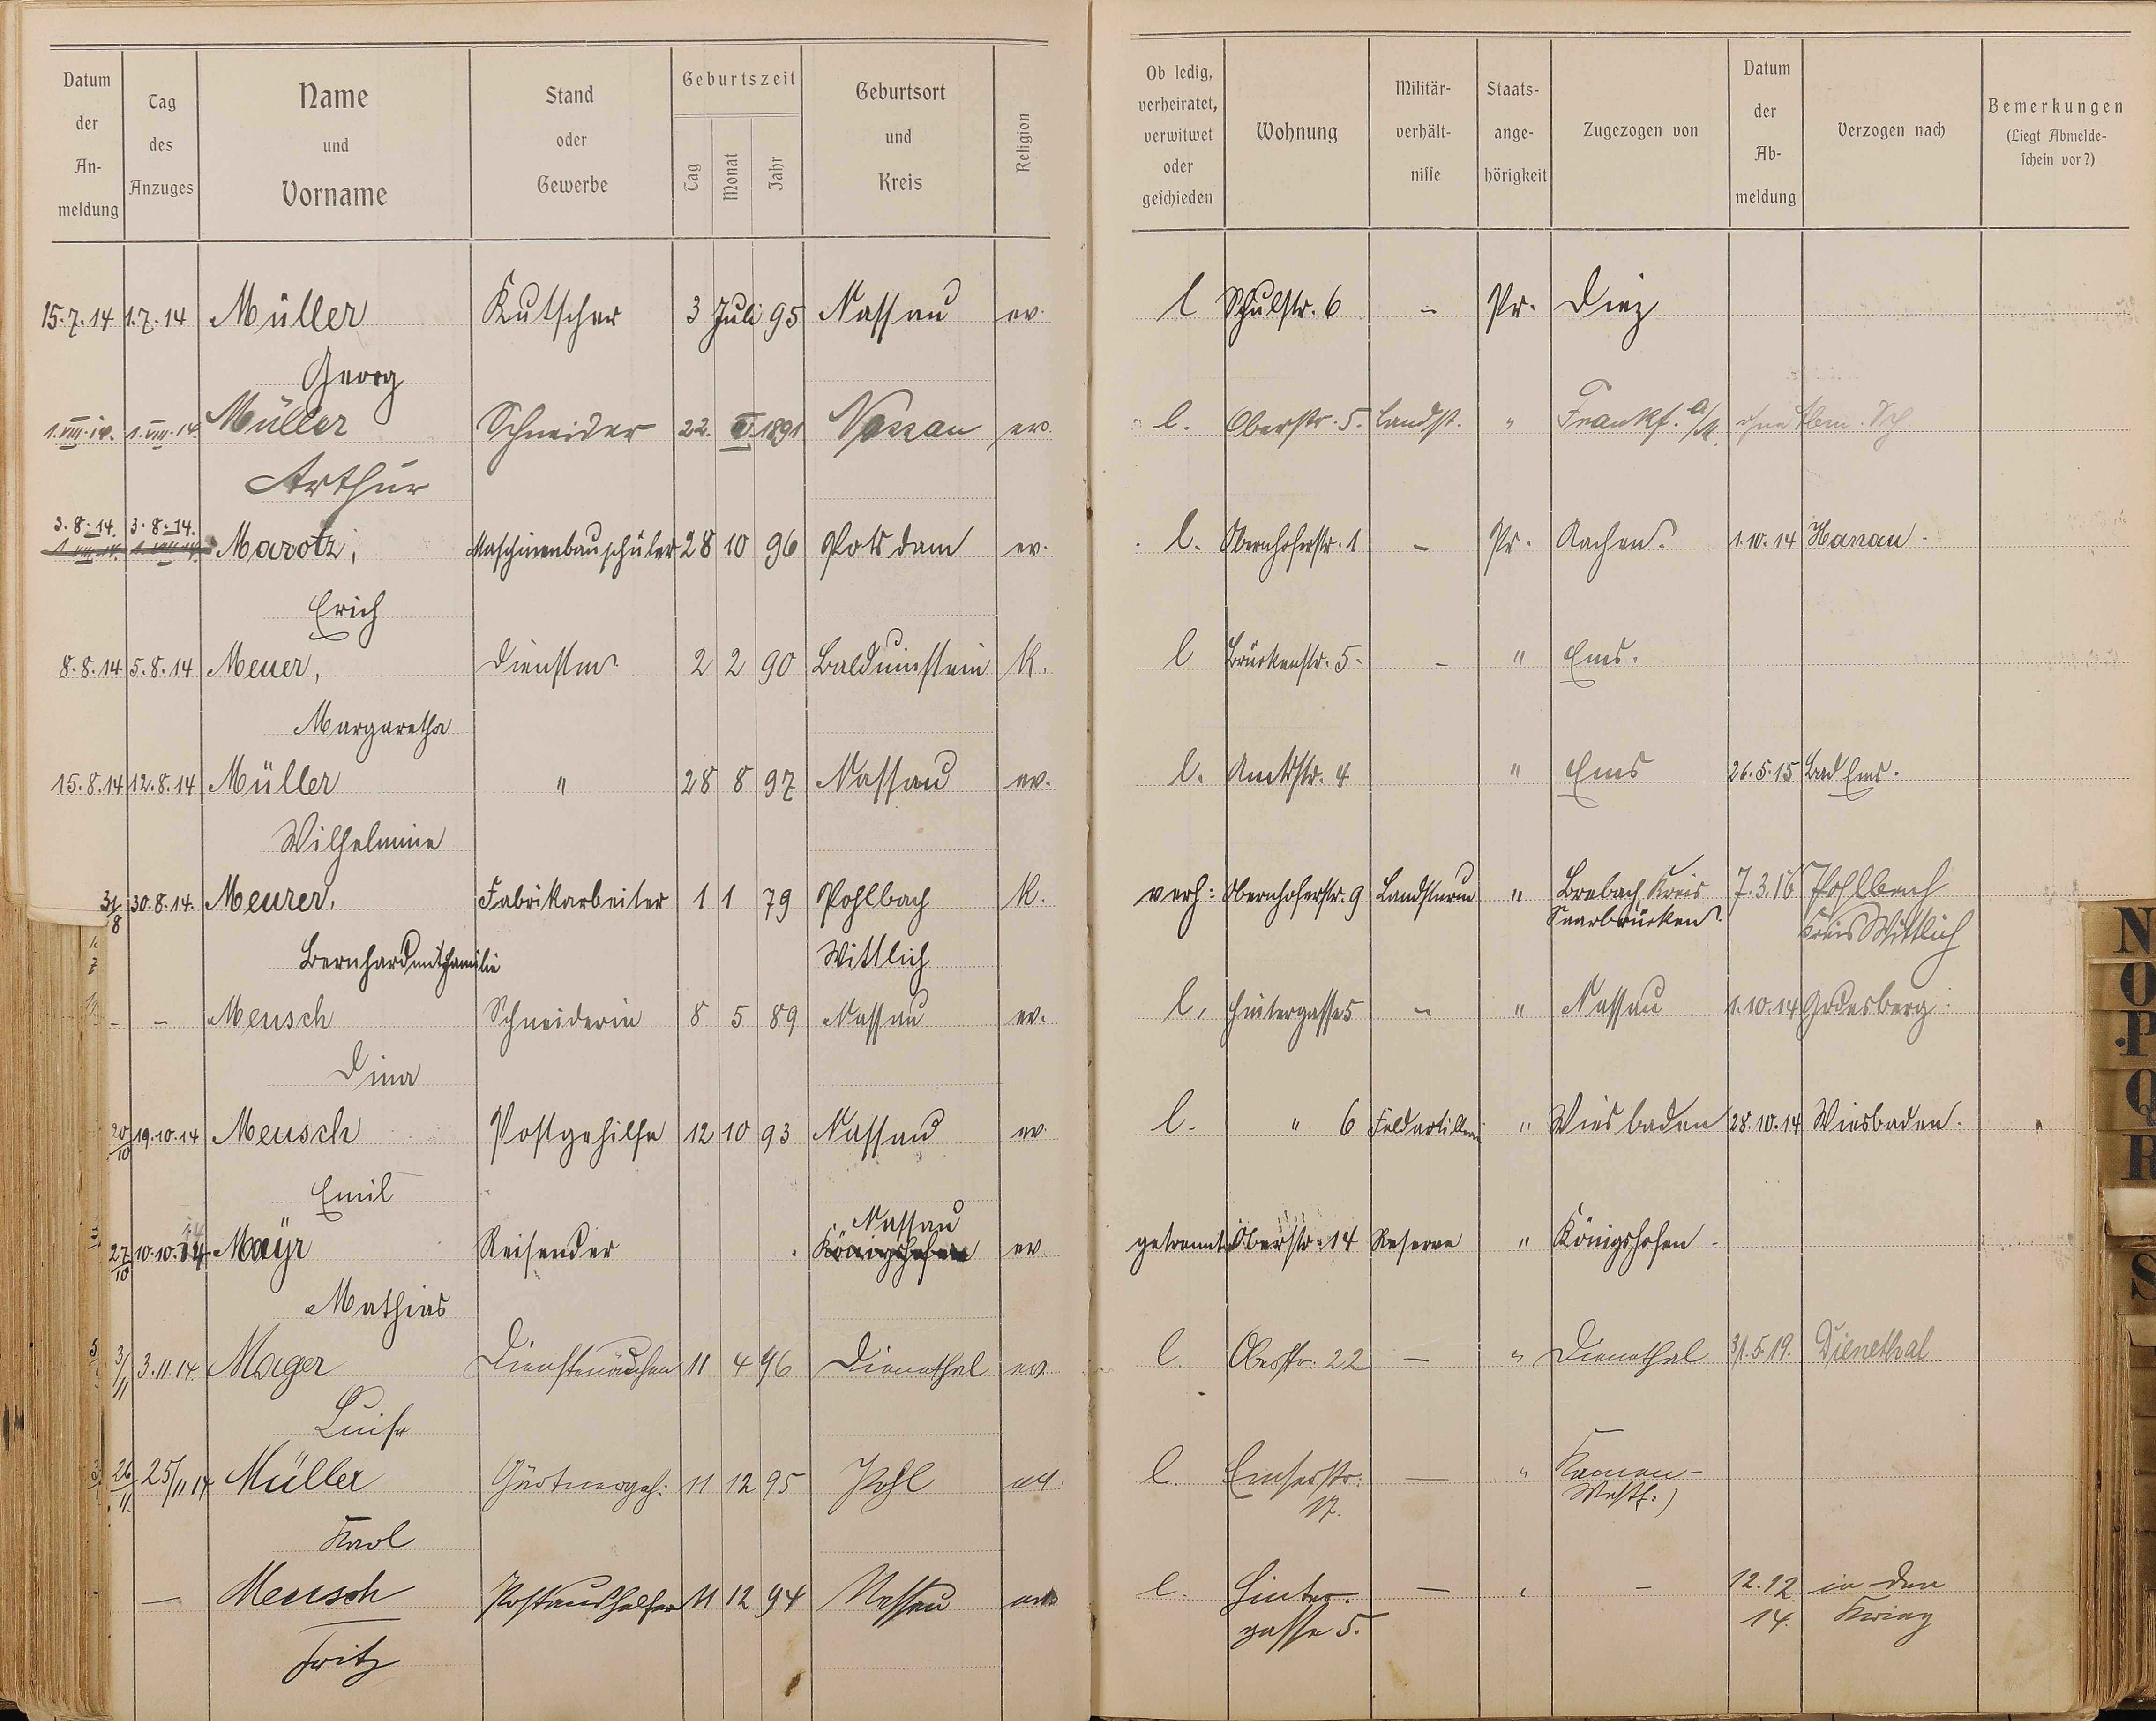 Datum der An-meldung | Tag des Anzuges | Name und Vorname | Stand oder Gewerbe | Geburtszeit Tag Monat Jahr | Geburtsort und Kreis | Religion | Ob ledig, verheiratet, verwitwet oder geschieden | Wohnung | Militär-verhält-nisse | Staats-ange-hörigkeit | Zugezogen von | Datum der Ab-meldung | Verzogen nach | Bemerkungen (Liegt Abmelde-schein vor?)
15.7.14 1.7.14 Müller Kutscher 3 Juli 95 Nassau ev. l Schulstr. 6 - Pr. Diez
Georg
1.VIII.14. 1.VIII.14. Müller Schneider 22. 1891 Nassau ev. l. Oberstr. 5. Landst. " Frankf. a/M.
Arthur
3.8.14. 3.8.14.
Marotz, Maschinenbauschüler 28 10 96 Potsdam ev. l. Obernhoferstr. 1 - Pr. Aachen. 1.10.14 Hanau.
Erich
8.8.14 5.8.14 Meuer, Dienstm. 2 2 90 Balduinstein K. l Brückenstr. 5. - " Ems.
Margaretha
15.8.14 12.8.14 Müller " 28 8 97 Nassau ev. l. Amtsstr. 4 " Ems 26.5.15 Bad Ems.
Wilhelmine
31/8 30.8.14. Meurer, Fabrikarbeiter 1 1 79 Pohlbach K. verh: Obernhoferstr. 9 Landsturm " Brebach, Kreis 7.3.16 Pohlbach
Saarbrücken. Kreis Wittlich
Bernhard mit Familie Wittlich
- - Meusch Schneiderin 8 5 89 Nassau ev. l. Hintergasse 5 - " Nassau 1.10.14 Godesberg.
Dina
20/10 19.10.14 Meusch Postgehilfe 12 10 93 Nassau ev. l. " 6 Feldartillerie " Wiesbaden 28.10.14 Wiesbaden.
Emil
Nassau
27/10 10.10.14 Mayr Reisender Königshofen ev getrennt Oberstr. 14 Reserve " Königshofen
Mathias
3/11 3.11.14. Mager Dienstmädchen 11 4 96 Dienethal ev. l. Oberstr. 22 - " Dienethal 31.5.19. Dienethal
Luise
26/11. 25/11 14 Müller Gärtnergeh. 11 12 95 Pohl ev. l. Emserstr. - " Kamen
17. Westf.)
Karl
- Meusch Postaushelfer 11 12 94 Nassau ev. l. Hinter- - " - 12.12. in den
gasse 5. 14. Krieg
Fritz
N
O
P
Q
R
S